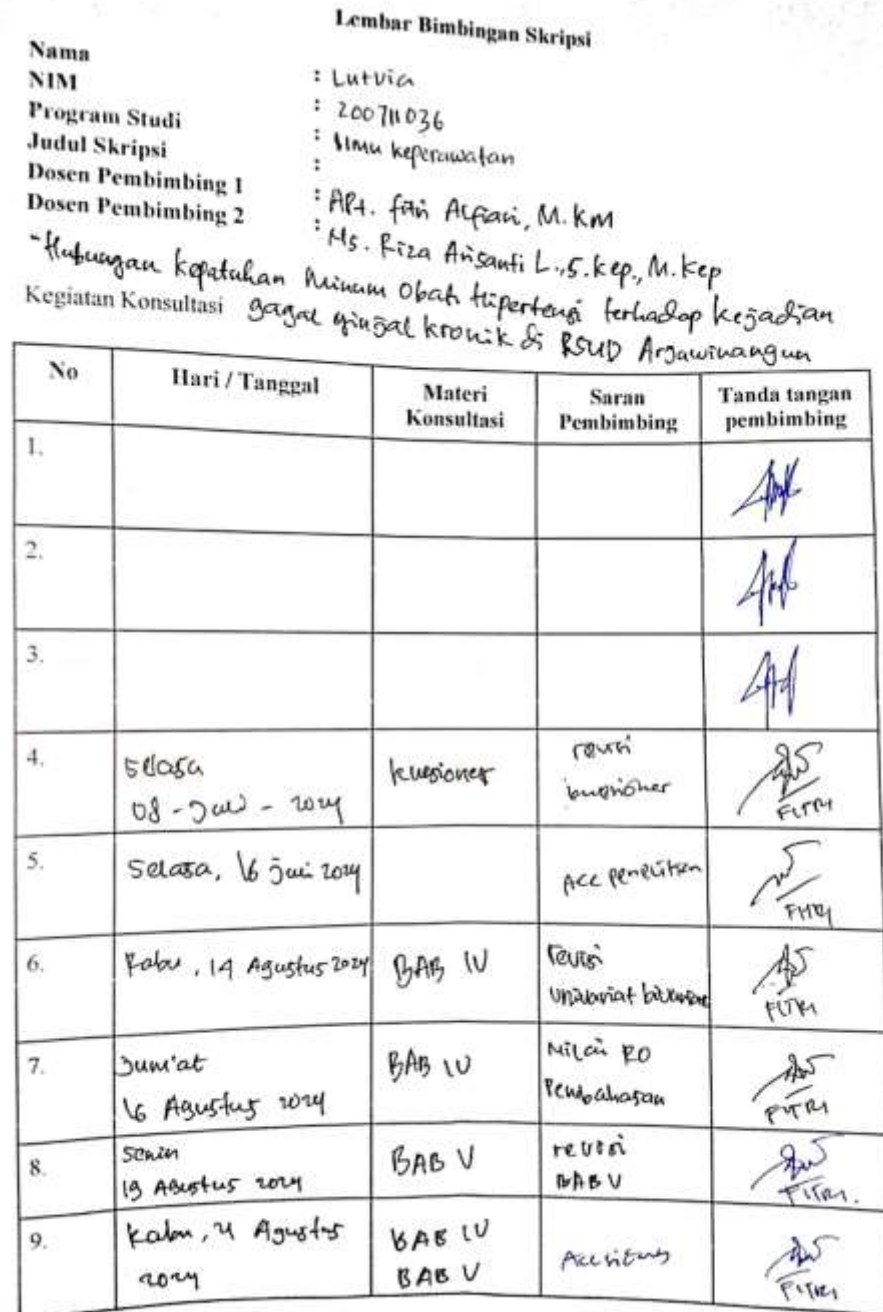 Lembar Bimbingan Skripsi
Nama : Lutvia
NIM : 200711036
Program Studi : Ilmu keperawatan
Judul Skripsi :
Dosen Pembimbing 1 : APt. fitri Alfiani, M.KM
Dosen Pembimbing 2 : Ns. Riza Arisanti L., S.kep., M.kep
- Hubungan kepatuhan Minum Obat hipertensi terhadap kejadian
Kegiatan Konsultasi gagal ginjal kronik di RSUD Arjawinangun
No Hari / Tanggal Materi Konsultasi Saran Pembimbing Tanda tangan pembimbing
1.
2.
3.
4. Selasa 08 - Juli - 2024 kuesioner revisi kuesioner FITRI
5. Selasa, 16 Juli 2024 Acc penelitian FITRI
6. Rabu, 14 Agustus 2024 BAB IV revisi univariat bivariat FITRI
7. Jum'at 16 Agustus 2024 BAB IV Nilai RO Pembahasan FITRI
8. Senin 19 Agustus 2024 BAB V revisi BAB V FITRI.
9. Rabu, 21 Agustus 2024 BAB IV BAB V Acc FITRI